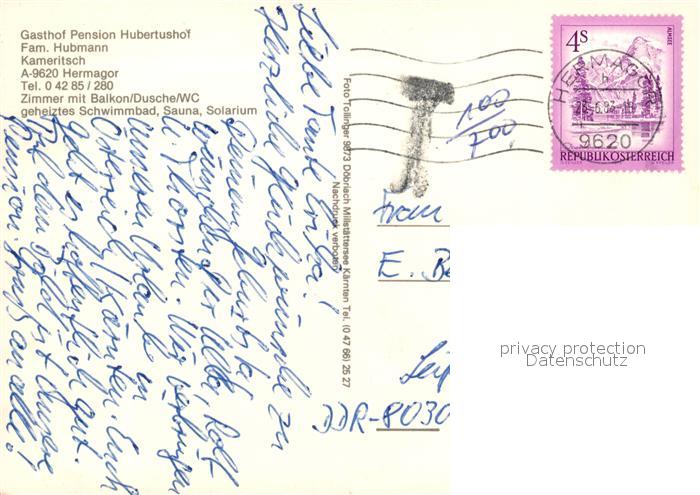 Gasthof Pension Hubertushof
Fam. Hubmann
Kameritsch
A-9620 Hermagor
Tel. 0 42 85 / 280
Zimmer mit Balkon/Dusche/WC
geheiztes Schwimmbad, Sauna, Solarium
Liebe Tante Erika!
Herzliche Glückwünsche zu
Deinem Geburtstag
Rolf
u. Thorsten. Wir verbringen
unseren Urlaub in
Österreich/Kärnten. Euch
geht es hoffentlich gut.
Auf dem Bild ist unsere
Pension. Gruß an alle!
Foto Tollinger 9873 Döbriach Millstättersee Kärnten Tel. (0 47 66) 25 27
Nachdruck verboten
T
100
700
4S
ALMSEE
REPUBLIK ÖSTERREICH
HERMAGOR
9620
Frau
E. Be
Leip
DDR-8030
privacy protection
Datenschutz